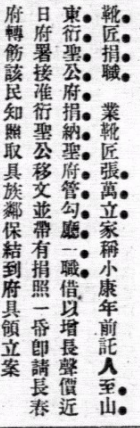 靴匠捐職　業靴匠張萬立家稱小康年前託人至山
東衍聖公府捐納聖府管勾廳一職借以增長聲價近
日府署接准衍聖公移文並帶有捐照一帋卽請長春
府轉筋該民知照取具族鄰保結到府具領立案